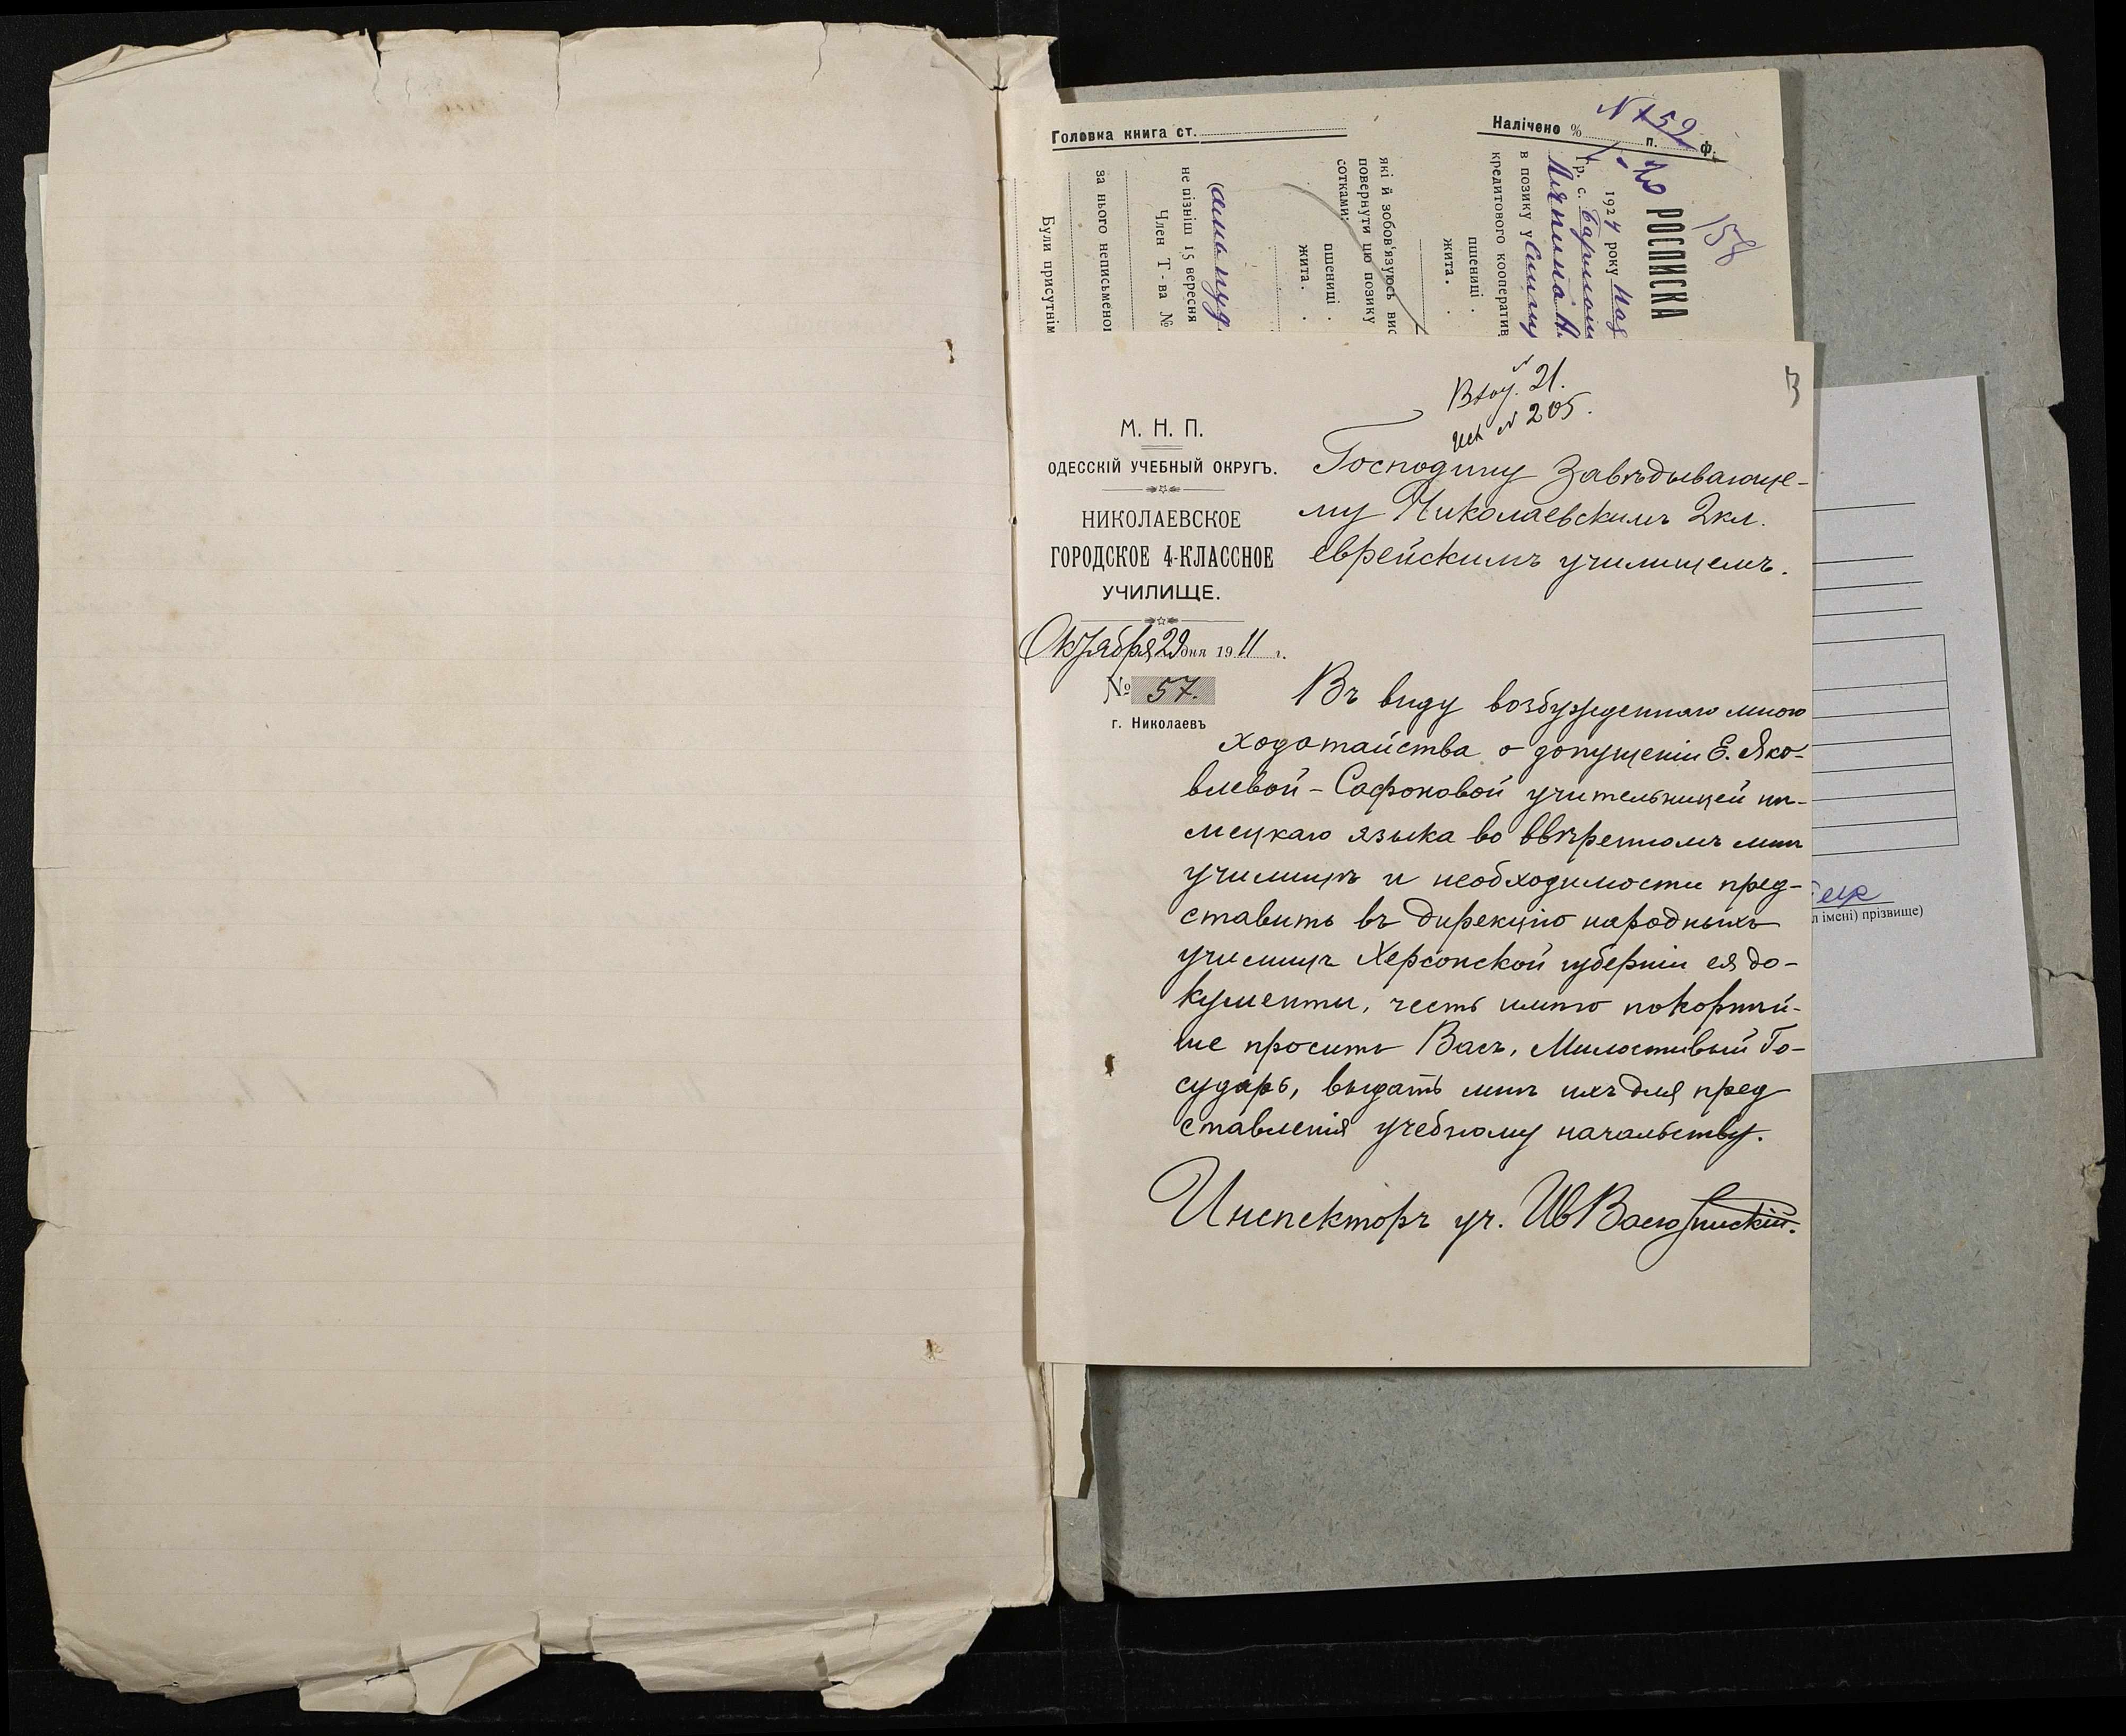 Головна книга ст.
Налічено % п. ф.
N 159
158
РОСПИСКА
1924 року
Гр. с.
в позику у
кредитового кооператив
пшениці .
жита .
які й зобов'язуюсь вис
повернути цю позику
сотками:
пшениці .
жита .
не пізніш 15 вересня
Член Т-ва №
за нього неписьменог
Були присутнім
3
Вход. № 21.
исх № 205.
М. Н. П.
ОДЕССКІЙ УЧЕБНЫЙ ОКРУГЪ.
НИКОЛАЕВСКОЕ
ГОРОДСКОЕ 4-КЛАССНОЕ
УЧИЛИЩЕ.
Октября 29 дня 1911 г.
№ 57.
г. Николаевъ
Господину Завѣдывающе-
му Николаевскимъ 2кл.
еврейскимъ училищемъ.
Въ виду возбужденнаго мною
ходотайства о допущеніи Е. Яко-
влевой-Сафоновой учительницей нѣ-
мецкаго языка во ввѣренномъ мнѣ
училищѣ и необходимости пред-
ставить въ Дирекцію народныхъ
училищъ Херсонской губерніи ея до-
кументы, честь имѣю покорнѣй-
ше просить Васъ, Милостивый Го-
сударь, выдать мнѣ ихъ для пред
ставленія учебному начальству.
Инспекторъ уч. Ив
л імені) прізвище)